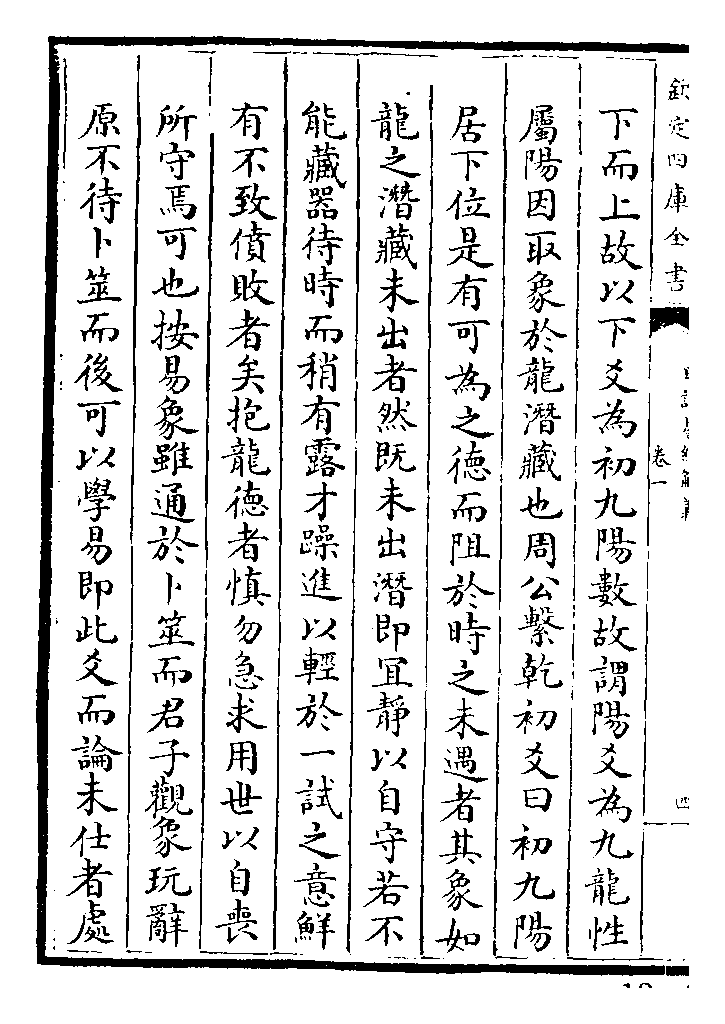 欽定四庫全書
卷一
四
下而上故以下爻為初九陽數故謂陽爻為九龍性
屬陽因取象於龍潛藏也周公繫乾初爻曰初九陽
居下位是有可為之德而阻於時之未遇者其象如
龍之潛藏未出者然既未出潛即宜靜以自守若不
能藏器待時而稍有露才躁進以輕於一試之意鮮
有不致僨敗者矣抱龍德者慎勿急求用世以自喪
所守焉可也按易象雖通於卜筮而君子觀象玩辭
原不待卜筮而後可以學易即此爻而論未仕者處